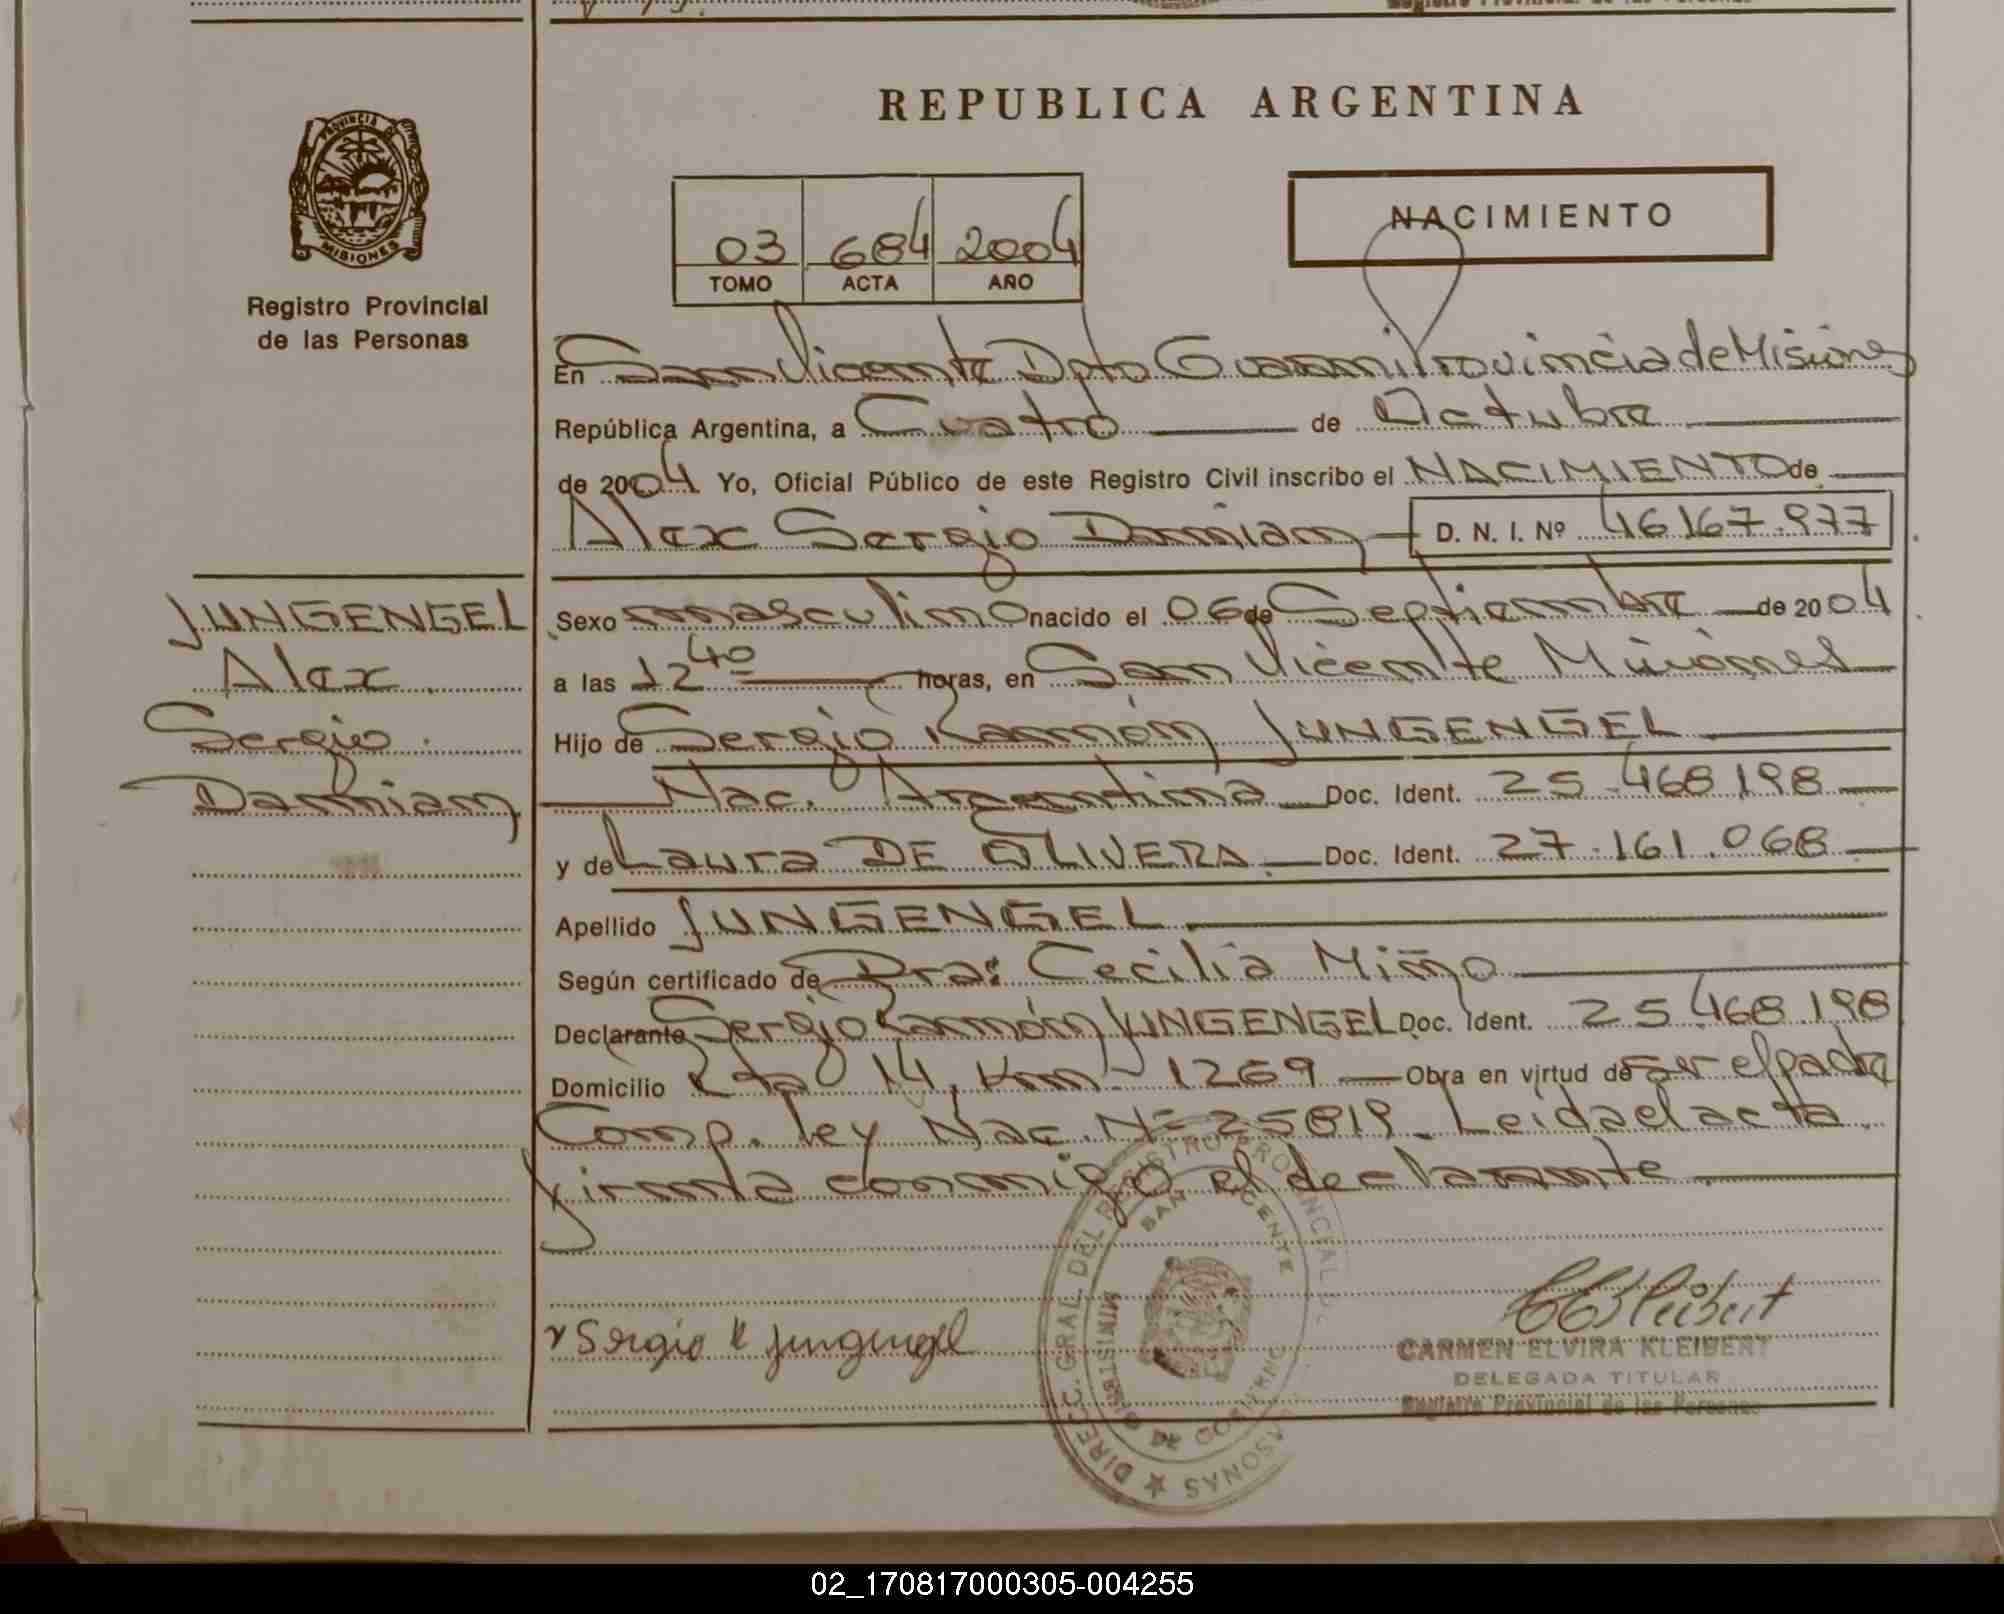 REPUBLICA ARGENTINA
PROVINCIA DE
MISIONES
Registro Provincial
de las Personas
03 684 2004
TOMO ACTA AÑO
NACIMIENTO
En San Vicente Dpto Guarani Provincia de Misiones
República Argentina, a Cuatro de Octubre
de 2004 Yo, Oficial Público de este Registro Civil inscribo el NACIMIENTO de
Alex Sergio Damian D. N. I. Nº 46167.977
JUNGENGEL
Alex
Sergio
Damian
Sexo masculino nacido el 06 de Septiembre de 2004
a las 12 40 horas, en San Vicente Misiones
Hijo de Sergio Ramón JUNGENGEL
Nac. Argentina Doc. Ident. 25.468.198
y de Laura DE OLIVERA Doc. Ident. 27.161.068
Apellido JUNGENGEL
Según certificado de Dra: Cecilia Miño
Declarante Sergio Ramón JUNGENGEL Doc. Ident. 25 468.198
Domicilio Rta 14, Km 1269 Obra en virtud de ser el padre
Comp. ley Nac. Nº 25819. Leida el acta
firmta conmigo el declarante
DIREC. GRAL. DEL REGISTRO PROVINCIAL
SAN VICENTE
MINISTERIO DE GOBIERNO
Sergio R Jungengel
CARMEN ELVIRA KLEIBERT
DELEGADA TITULAR
Registro Provincial de las Personas
02_170817000305-004255